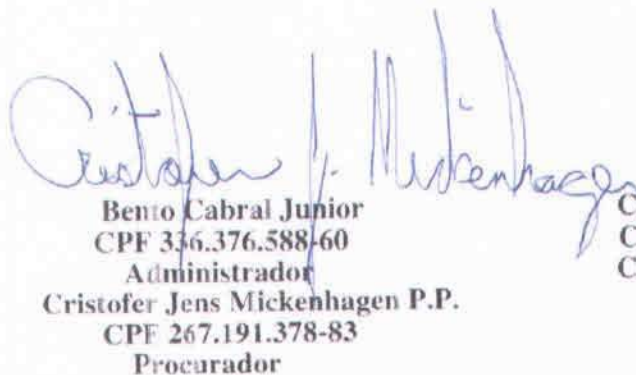 Cristofer J. Mickenhagen
Bento Cabral Junior
CPF 336.376.588-60
Administrador
Cristofer Jens Mickenhagen P.P.
CPF 267.191.378-83
Procurador
C
C
C